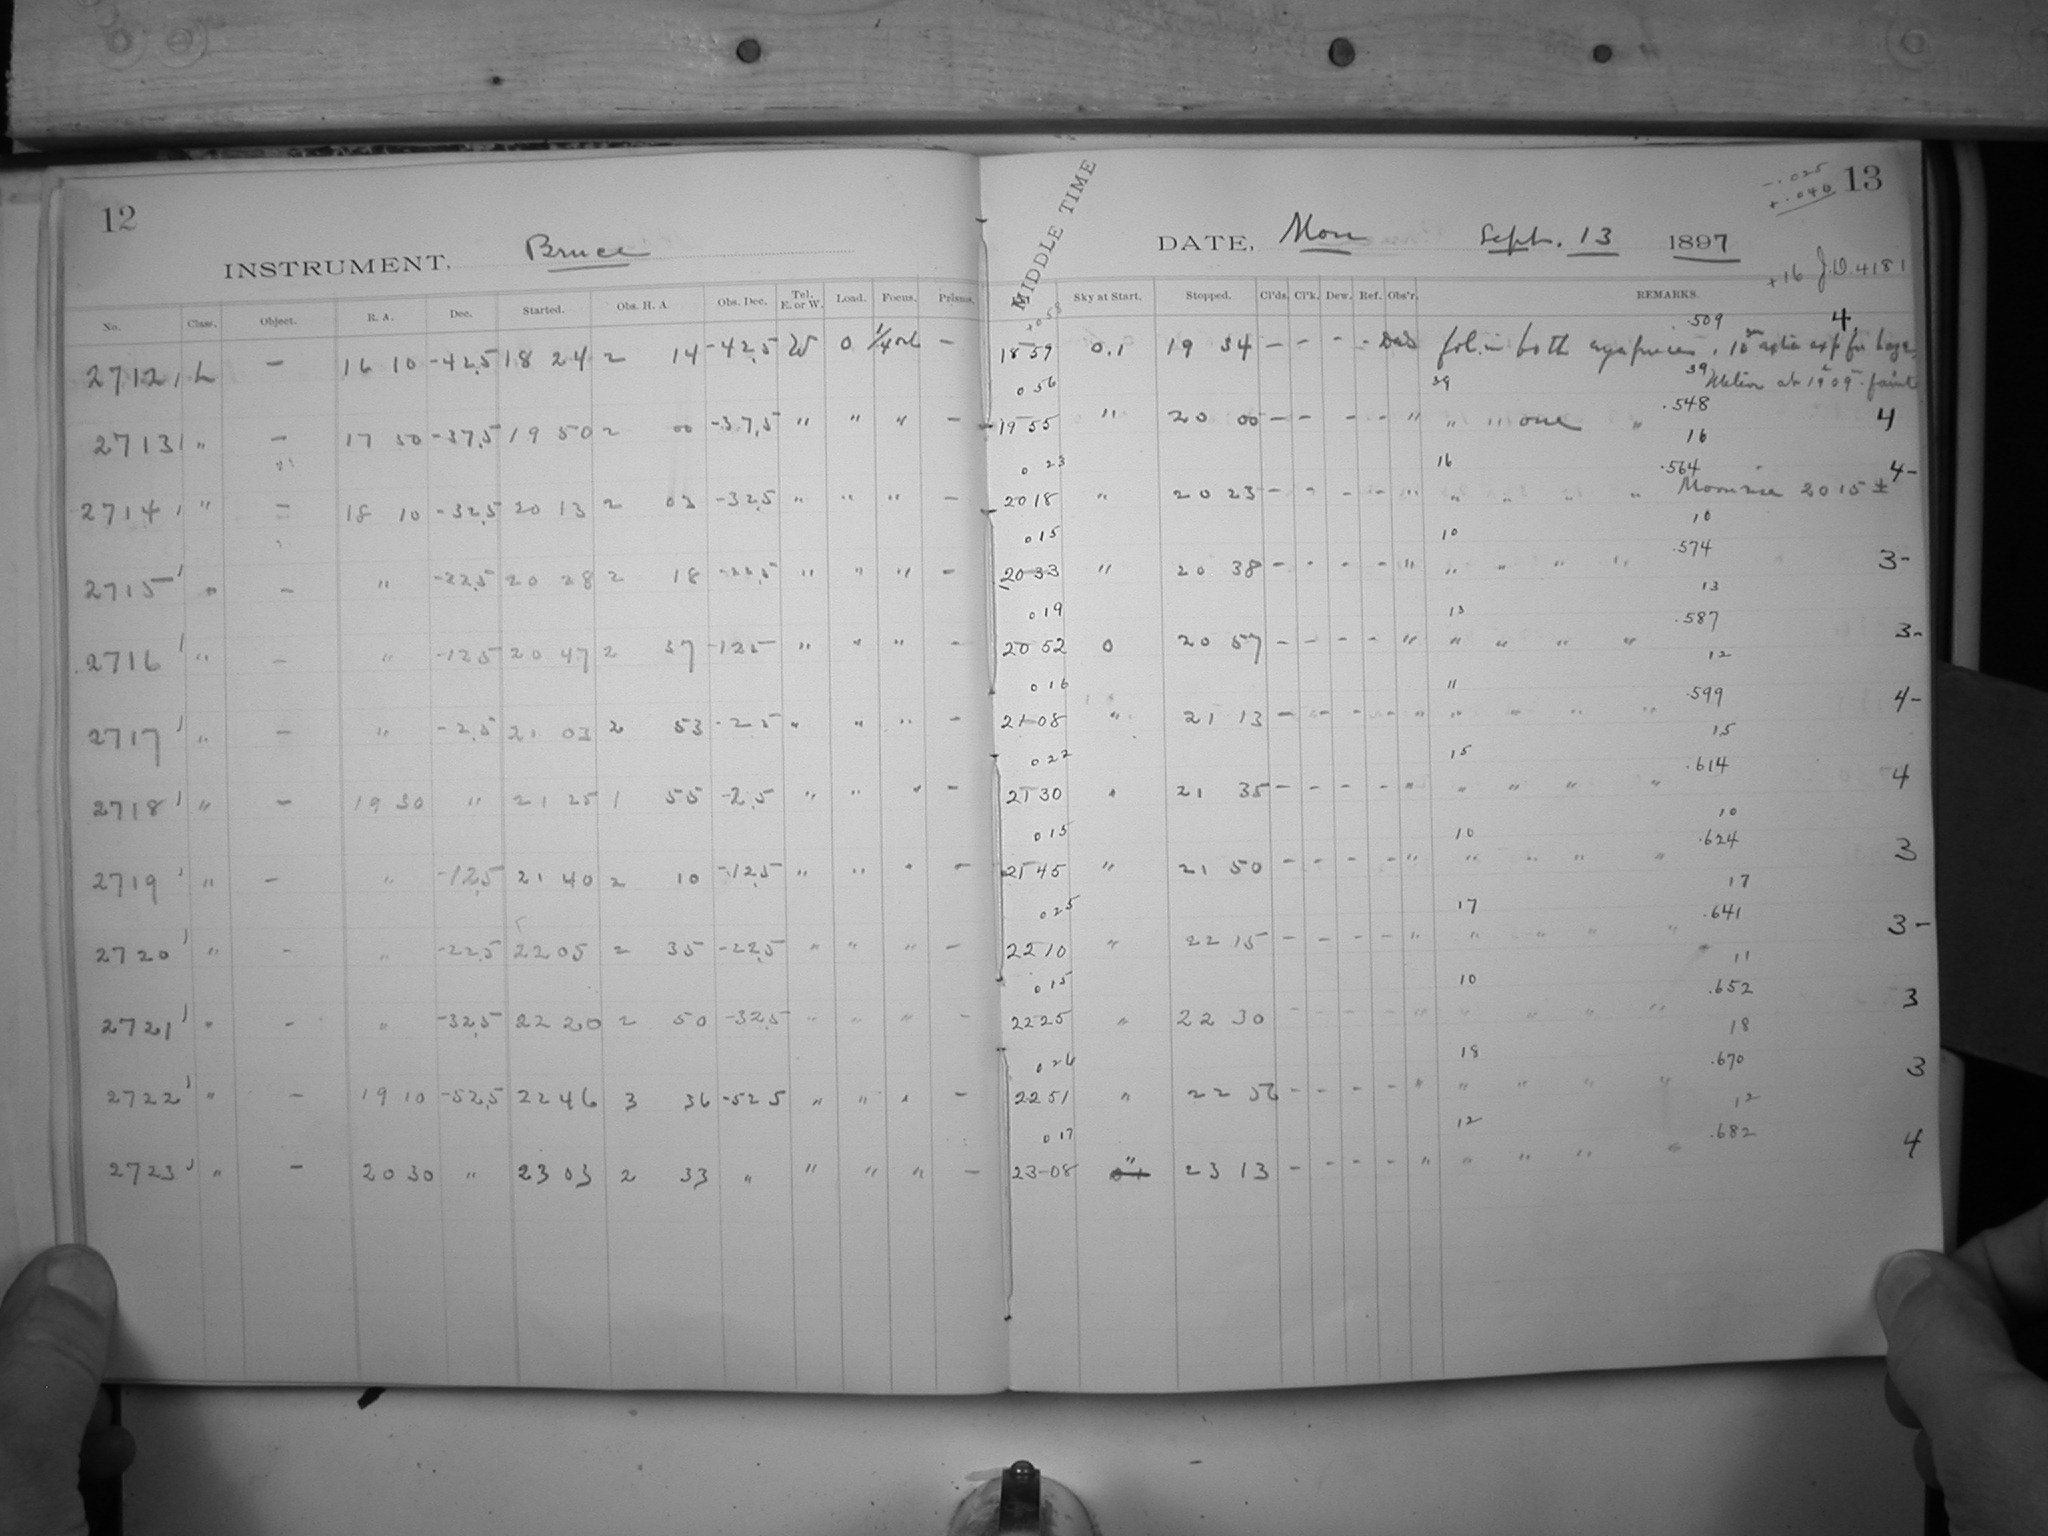 12
INSTRUMENT, Bruce
No. Class. Object. R. A. Dec. Started. Obs. H. A. Obs. Dec. Tel. E. or W. Load. Focus. Prisms.
2712 L – 16 10 -42.5 18 24 2 14 -42.5 W 0 –
2713 " – 17 50 -37.5 19 50 2 00 -37.5 " " " –
2714 " – 18 10 -32.5 20 13 2 03 -32.5 " " " –
2715 " – " -22.5 20 28 2 18 -22.5 " " " –
2716 " – " -12.5 20 47 2 37 -12.5 " " " –
2717 " – " -2.5 21 03 2 53 -2.5 " " " –
2718 " – 19 30 " 21 25 1 55 -2.5 " " " –
2719 " – " -12.5 21 40 2 10 -12.5 " " " –
2720 " – " -22.5 22 05 2 35 -22.5 " " " –
2721 " – " -32.5 22 20 2 50 -32.5 " " " –
2722 " – 19 10 -52.5 22 46 3 36 -52.5 " " " –
2723 " – 20 30 " 23 03 2 33 " " " " –
-.025
+.040
13
MIDDLE TIME
DATE, Mon Sept. 13 1897
+16 J.D. 4181
Sky at Start. Stopped. Cl'ds. Cl'k. Dew. Ref. Obs'r. REMARKS.
.509 4
18 59 0.1 19 34 – – – – fol. in both
0 56 39 39 Meteor at 19 09 faint
.548
19 55 " 20 00 – – – – " " " one " 4
16
0 23 16 .564 4-
20 18 " 20 23 – – – – " " " " " Moonrise 20 15 ±
0 15 10 10
.574
20 33 " 20 38 – – – – " " " " " 3-
0 19 13 13
.587
20 52 0 20 57 – – – – " " " " " 3-
0 16 11 12
.599
21 08 " 21 13 – – – – " " " " " 4-
0 22 15 15
.614
21 30 " 21 35 – – – – " " " " " 4
0 15 10 10
.624
21 45 " 21 50 – – – – " " " " " 3
0 25 17 17
.641
22 10 " 22 15 – – – – " " " " " 3-
0 15 10 11
.652
22 25 " 22 30 – – – – " " " " " 3
0 26 18 18
.670
22 51 " 22 56 – – – – " " " " " 3
0 17 12 12
.682
23 08 " 23 13 – – – – " " " " " 4